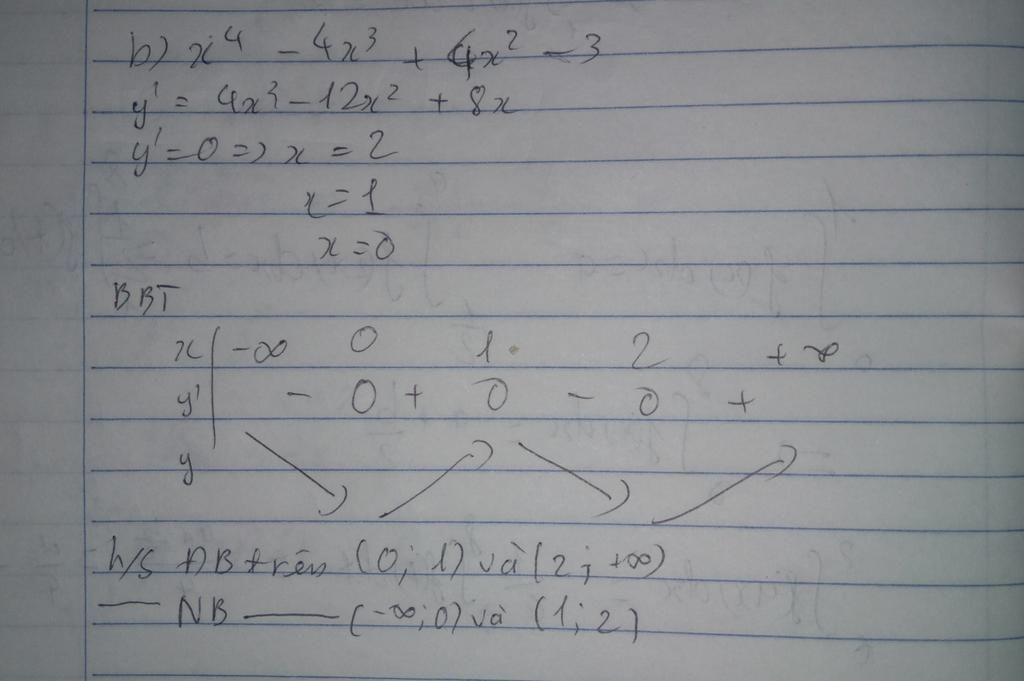 b) x⁴ - 4x³ + 4x² - 3
y' = 4x³ - 12x² + 8x
y' = 0 => x = 2
x = 1
x = 0
BBT
x -∞ 0 1 2 +∞
y' - 0 + 0 - 0 +
y
h/s ĐB trên (0; 1) và (2; +∞)
— NB — (-∞; 0) và (1; 2)